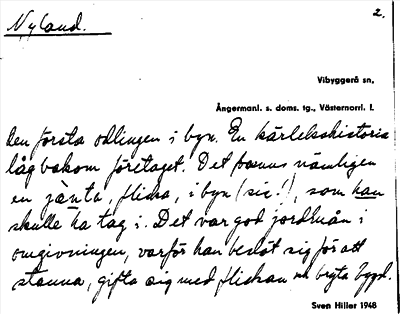 Nyland.
2.
Vibyggerå sn,
Ångermanl. s. doms. tg., Västernorrl. l.
den första odlingen i byn. En kärlekshistoria
låg bakom företaget. Det fanns nämligen
en jänta, flicka, i byn (sic!), som han
skulle ha tag i. Det var god jordmån i
omgivningen, varför han beslöt sig för att
stanna, gifta sig med flickan och bryta bygd.
Sven Hiller 1948